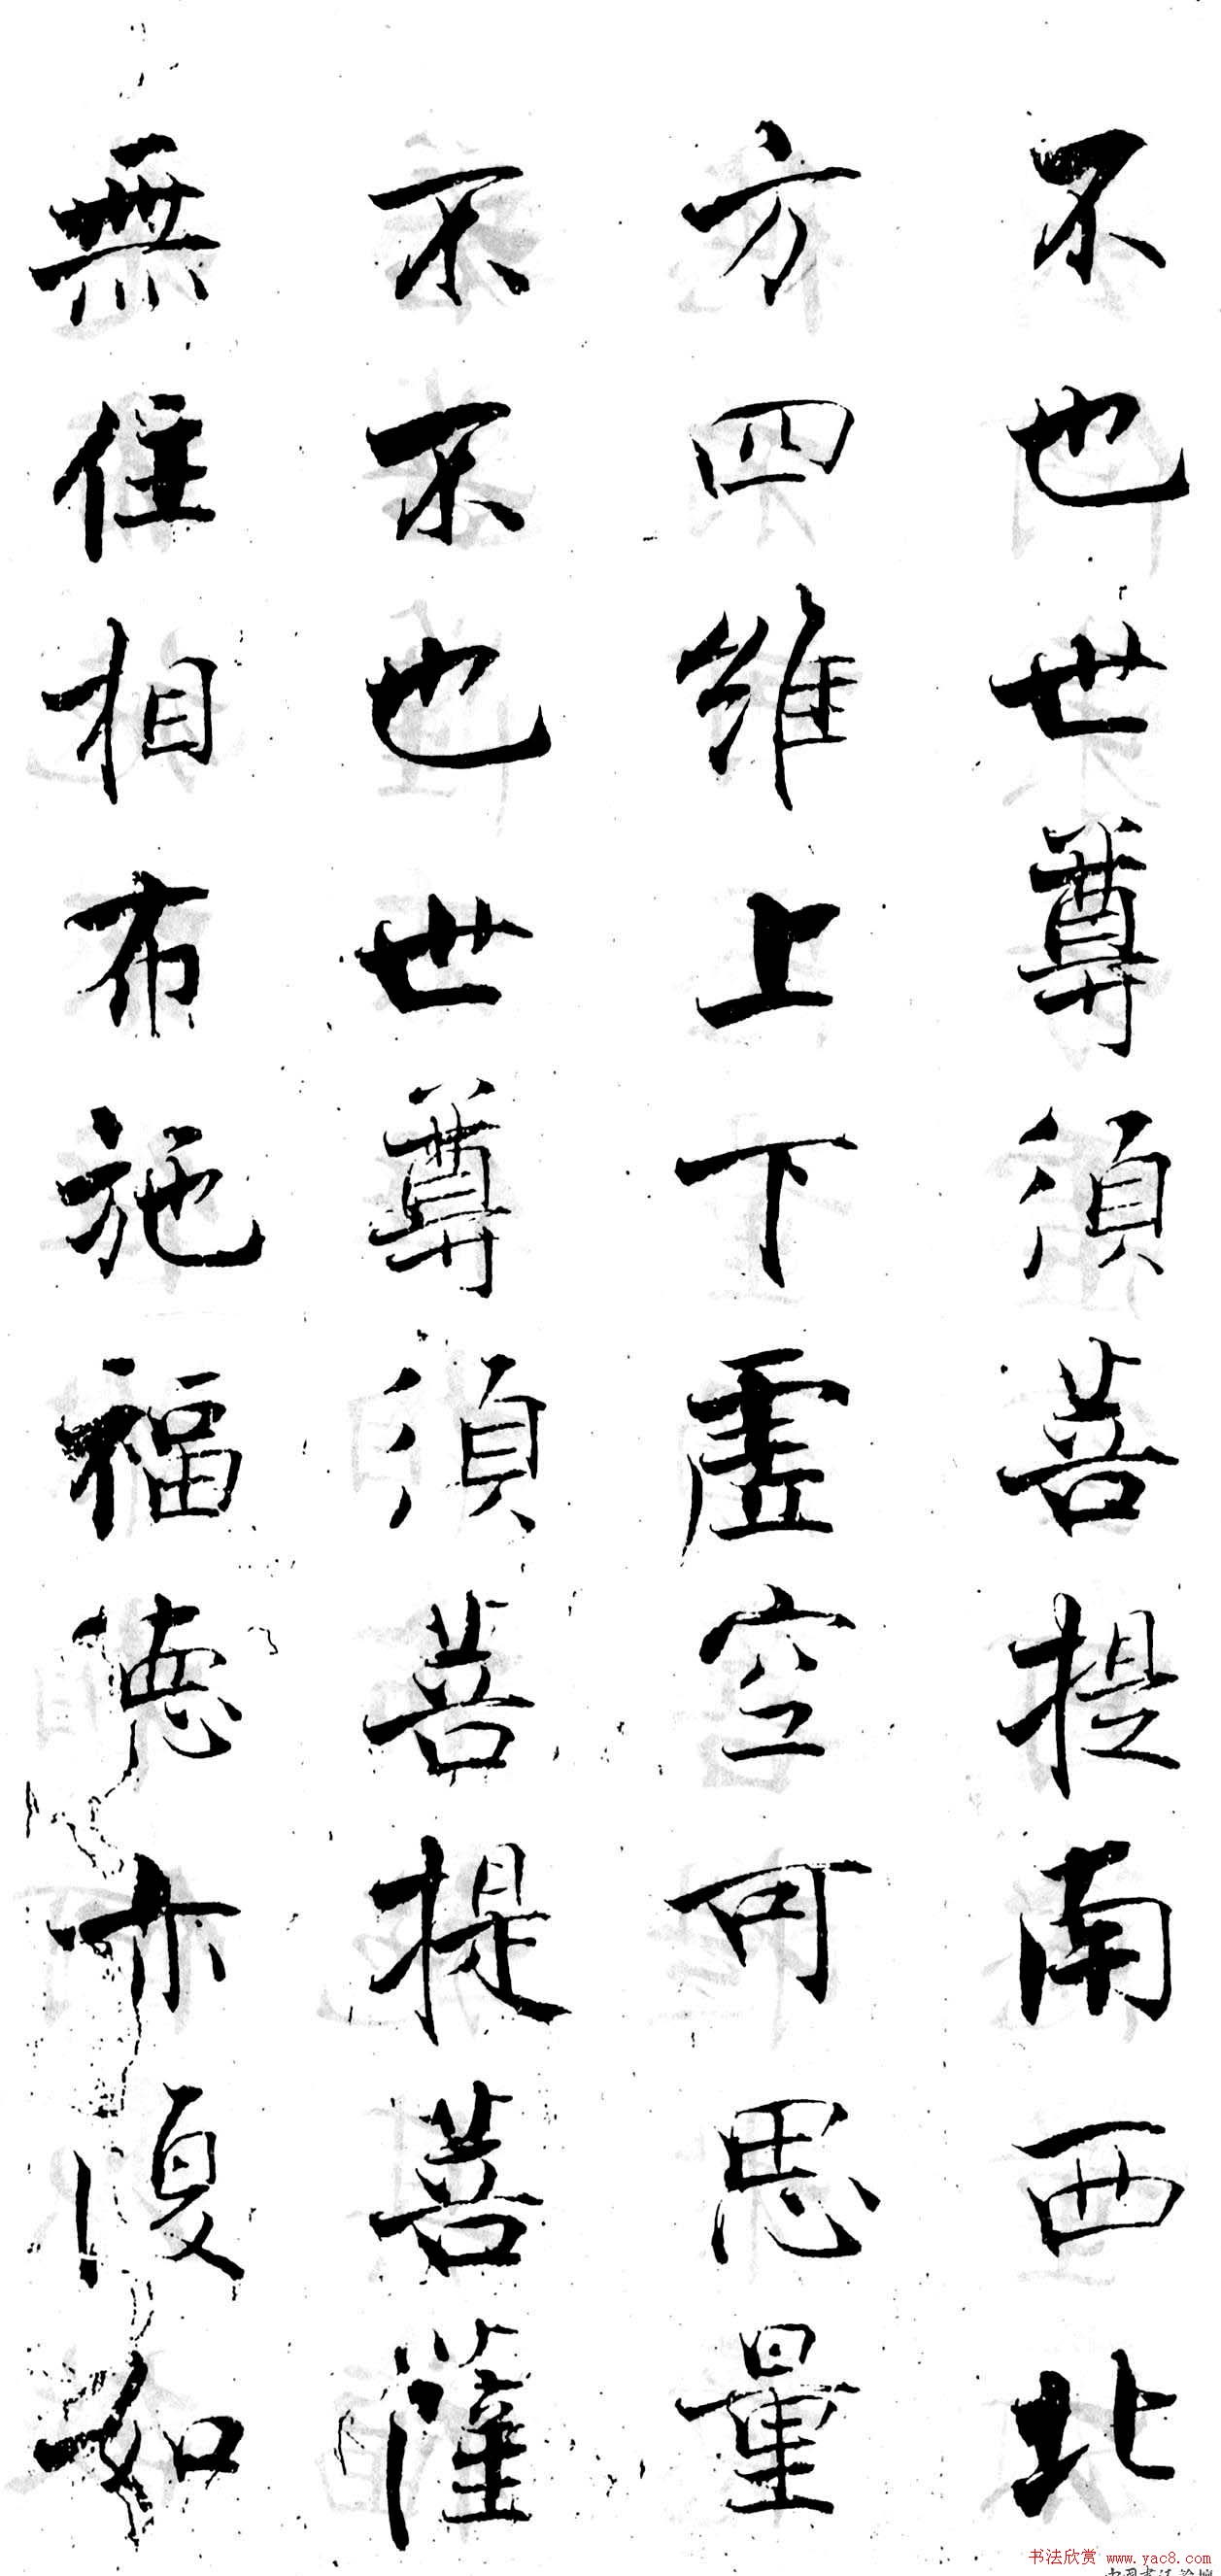 不也世尊須菩提南西北
方四維上下虛空可思量
不不也世尊須菩提菩薩
無住相布施福德亦復如
书法欣赏 www.yac8.com